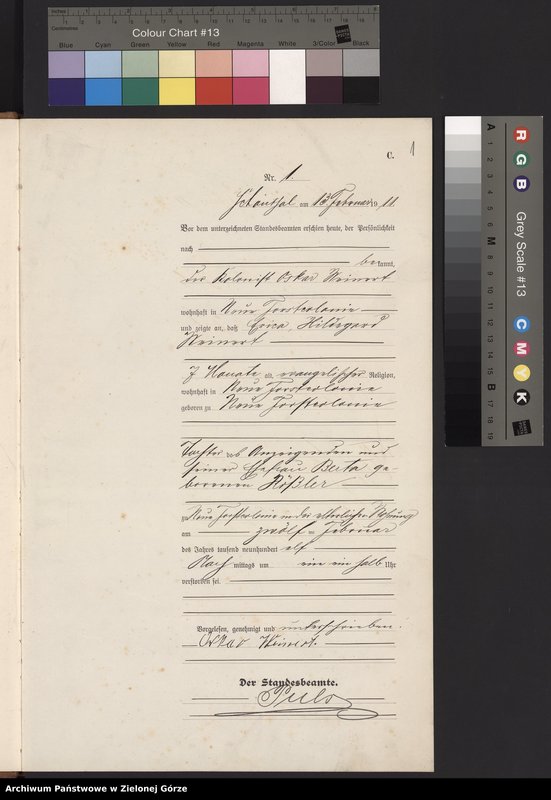 Inches
Centimetres
Colour Chart #13
Blue Cyan Green Yellow Red Magenta White 3/Color Black
C. 1
Nr. 1
am 13 Februar 19 11.
Vor dem unterzeichneten Standesbeamten erschien heute, der Persönlichkeit
nach
bekannt,
der Kolonist Oskar Weinert
wohnhaft in Neue Forstcolonie
und zeigte an, daß Erica Hildegard
Weinert
7 Monate alt, evangelischer Religion,
wohnhaft in Neue Forstcolonie
geboren zu Neue Forstcolonie
Tochter des Anzeigenden und
seiner Ehefrau Berta ge-
borenen Rößler
zu Neue Forstcolonie in der elterlichen Wohnung
am zwölf ten Februar
des Jahres tausend neunhundert elf
Nach mittags um ein ein halb Uhr
verstorben sei.
Vorgelesen, genehmigt und unterschrieben.
Oskar Weinert.
Der Standesbeamte.
Grey Scale #13
R G B C M Y K
A 1 2 3 4 5 6 M 8 9 10 11 12 13 14 15 B 17 18 19
Archiwum Państwowe w Zielonej Górze